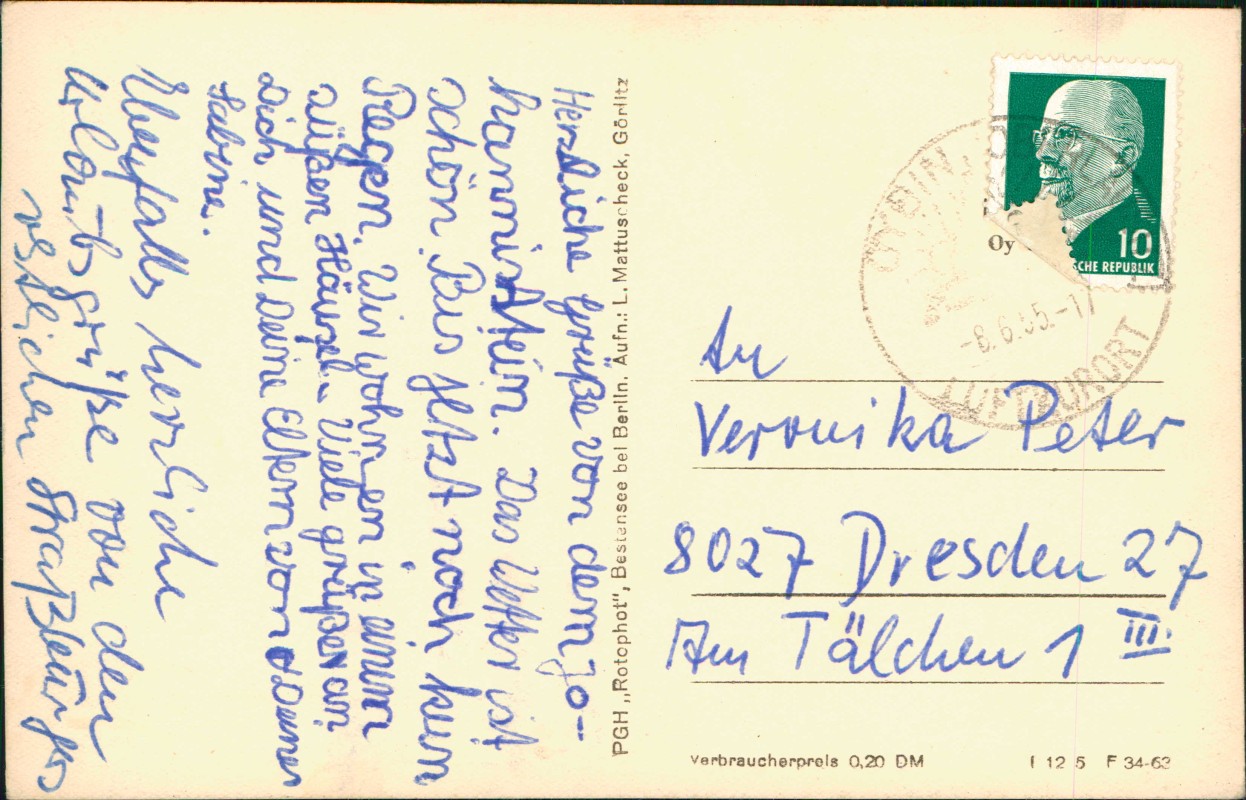 Herzliche Grüße von dem Jo-
hannisstein. Das Wetter ist
schön. Bis jetzt noch kein
Regen. Wir wohnen in einem
süßen Häusel. Viele grüßen an
Dich und Deine Eltern von Deiner
Sabine.
Ebenfalls herzliche
Urlaubsgrüße von den
restlichen Straßburgers
PGH „Rotophot", Bestensee bei Berlin. Aufn.: L. Mattuscheck, Görlitz
10
SCHE REPUBLIK
Oy
OYBIN,
-8.6.65.-17
LUFTKURORT
An
Veronika Peter
8027 Dresden 27
Am Tälchen 1 III.
Verbraucherpreis 0,20 DM
F 34-63